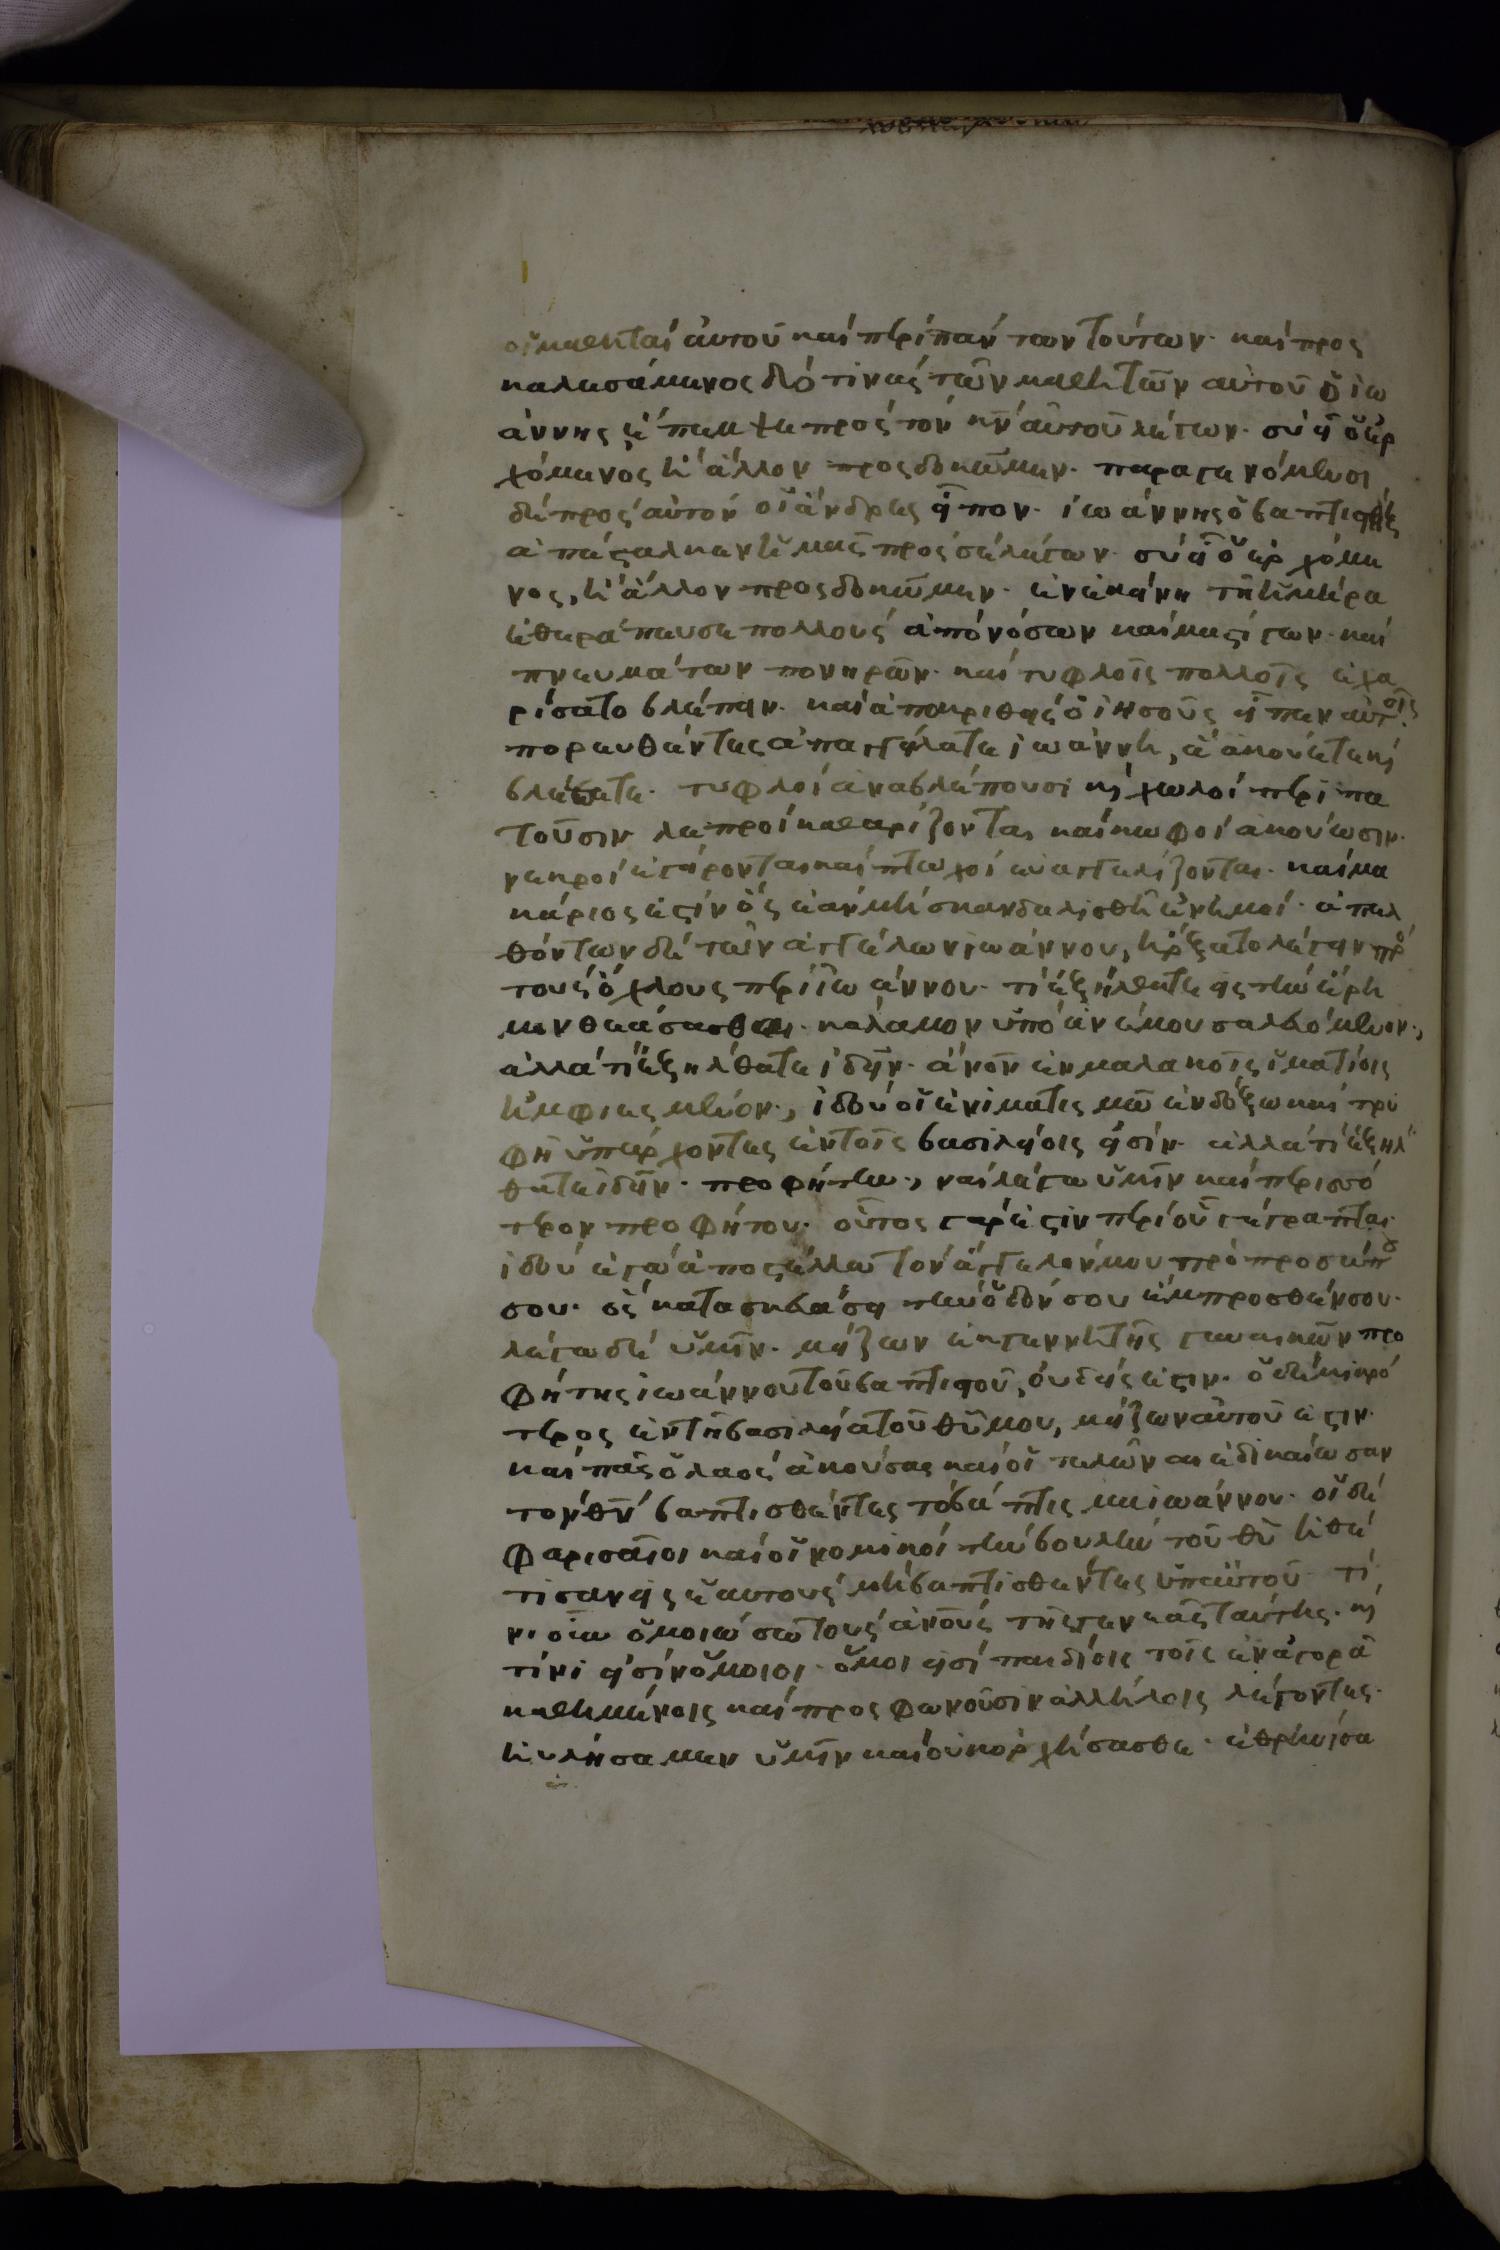 οἱ μαθηταὶ αὐτοῦ καὶ περὶ πάντων τούτων· καὶ προς
καλεσάμενος δύο τινὰς τῶν μαθητῶν αὐτοῦ ὁ ἰω
άννης ἔπεμψε πρὸς τὸν κν αὐτοῦ λέγων· σὺ εἶ ὁ ἐρ
χόμενος ἢ ἄλλον προςδοκῶμεν· παραγενόμενοι
δὲ πρὸς αὐτὸν οἱ ἄνδρες εἶπον· ἰωάννης ὁ βαπτιστὴς
ἀπέσταλκεν ἡμᾶς πρὸς σὲ λέγων· σὺ εἶ ὁ ἐρχόμε
νος, ἢ ἄλλον προςδοκῶμεν· ἐν ἐκείνη τῆ ἡμέρα
ἐθεράπευσε πολλοὺς ἀπὸ νόσων καὶ μαστίγων· καὶ
πνευμάτων πονηρῶν· καὶ τυφλοῖς πολλοῖς ἐχα
ρίσατο βλέπειν· καὶ ἀποκριθεὶς ὁ ἰησοῦς εἶπεν αὐτοῖς·
πορευθέντες ἀπαγγείλατε ἰωάννη, ἃ ἀκούετε κὶ
βλέπετε· τυφλοὶ ἀναβλέπουσι κὶ χωλοὶ περιπα
τοῦσιν λεπροὶ καθαρίζονται καὶ κωφοὶ ἀκούωσιν·
νεκροὶ ἐγείρονται καὶ πτωχοὶ εὐαγγελίζονται· καὶ μα
κάριος ἐστὶν ὃς ἐὰν μὴ σκανδαλισθῆ ἐν ἐμοί· ἀπελ
θόντων δὲ τῶν ἀγγέλων ἰωάννου, ἤρξατο λέγειν πρὸ
τοὺς ὄχλους περὶ ἰωάννου· τί ἐξήλθετε εἰς τὴν ἔρη
μον θεάσασθαι· κάλαμον ὑπὸ ἀνέμου σαλευόμενον·,
ἀλλὰ τί ἐξηλθατε ἰδεῖν· ἄνον ἐν μαλακοῖς ἱματίοις
ἠμφιεσμένον·, ἰδοὺ οἱ ἐν ἱματισμῶ ἐνδόξω καὶ τρυ
φῆ ὑπάρχοντες ἐν τοῖς βασιλείοις εἰσίν· ἀλλὰ τί ἐξηλ
θατε ἰδεῖν· προφήτην·, ναὶ λέγω ὑμῖν καὶ περισσό
τερον προφήτου· οὗτος γάρ ἐστιν περὶ οὗ γέγραπται
ἰδοὺ ἐγὼ ἀποστέλλω τὸν ἄγγελόν μου πρὸ προσώπου
σου· ὃς κατασκευάσει τὴν ὁδόν σου ἔμπροσθέν σου·
λέγω δὲ ὑμῖν· μείζων ἐν γεννητῆς γυναικῶν προ
φήτης ἰωάννου τοῦ βαπτιστοῦ, οὐδείς ἐστιν· ὁ δὲ μικρό
τερος ἐν τῆ βασιλεία τοῦ θῦ μου, μείζων αὐτοῦ ἐστιν·
καὶ πᾶς ὁ λαὸς ἀκούσας καὶ οἱ τελῶναι ἐδικαίωσαν
τὸν θν βαπτισθέντες τὸ βάπτισμα ἰωάννου· οἱ δὲ
φαρισαῖοι καὶ οἱ νομικοὶ τὴν βουλὴν τοῦ θῦ ἠθέ
τισαν εἰς ἑαυτοὺς μὴ βαπτισθέντες ὑπ αὐτοῦ· τί
νι οὖν ὁμοιώσω τοὺς ἀνοὺς τῆς γενεᾶς ταύτης· κὶ
τίνι εἰσὶν ὅμοιοι· ὅμοι εἰσὶ παιδίοις τοῖς ἐν ἀγορᾶ
καθημένοις καὶ προςφωνοῦσιν ἀλλήλοις λέγοντες·
ηὐλήσαμεν ὑμῖν καὶ οὐκ ὀρχήσασθε· ἐθρηνήσα